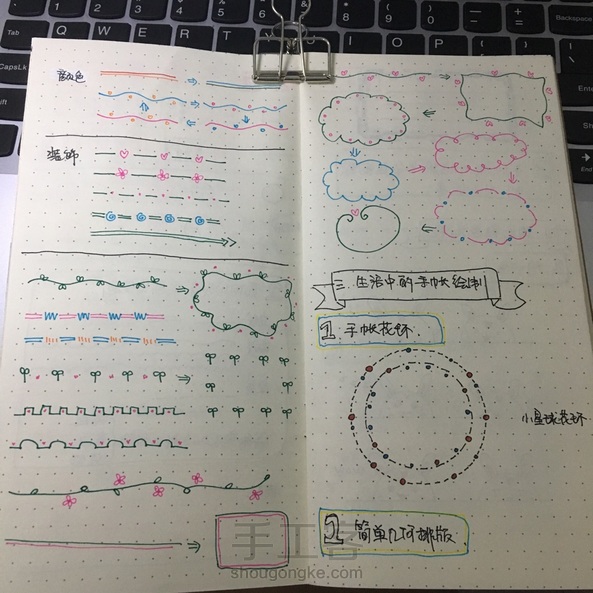 颜色
装饰
三.生活中的手帐绘制
1.手帐花环.
小星球花环
2 简单几何排版
手工客
shougongke.com
Tab
CapsLk
Shift
Q
W
E
R
T
U
I
O
P
8
9
0
Backspace
Enter
Shift
End